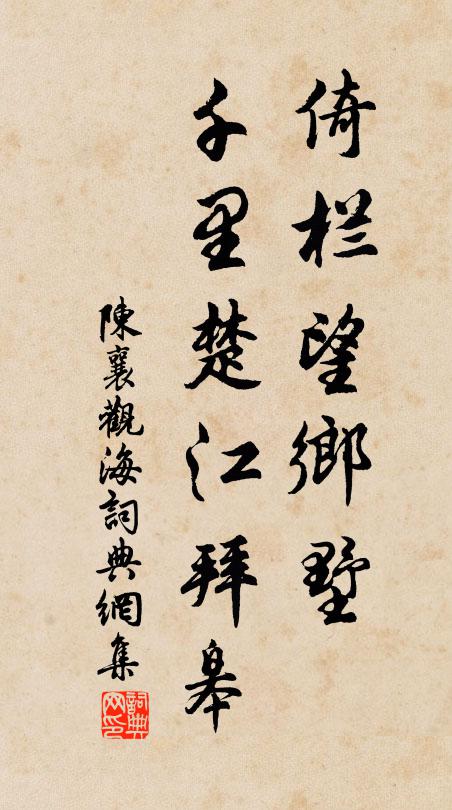 倚栏望鄉墅
千里楚江拜皋
陳襄觀海詞典網集
詞典网印